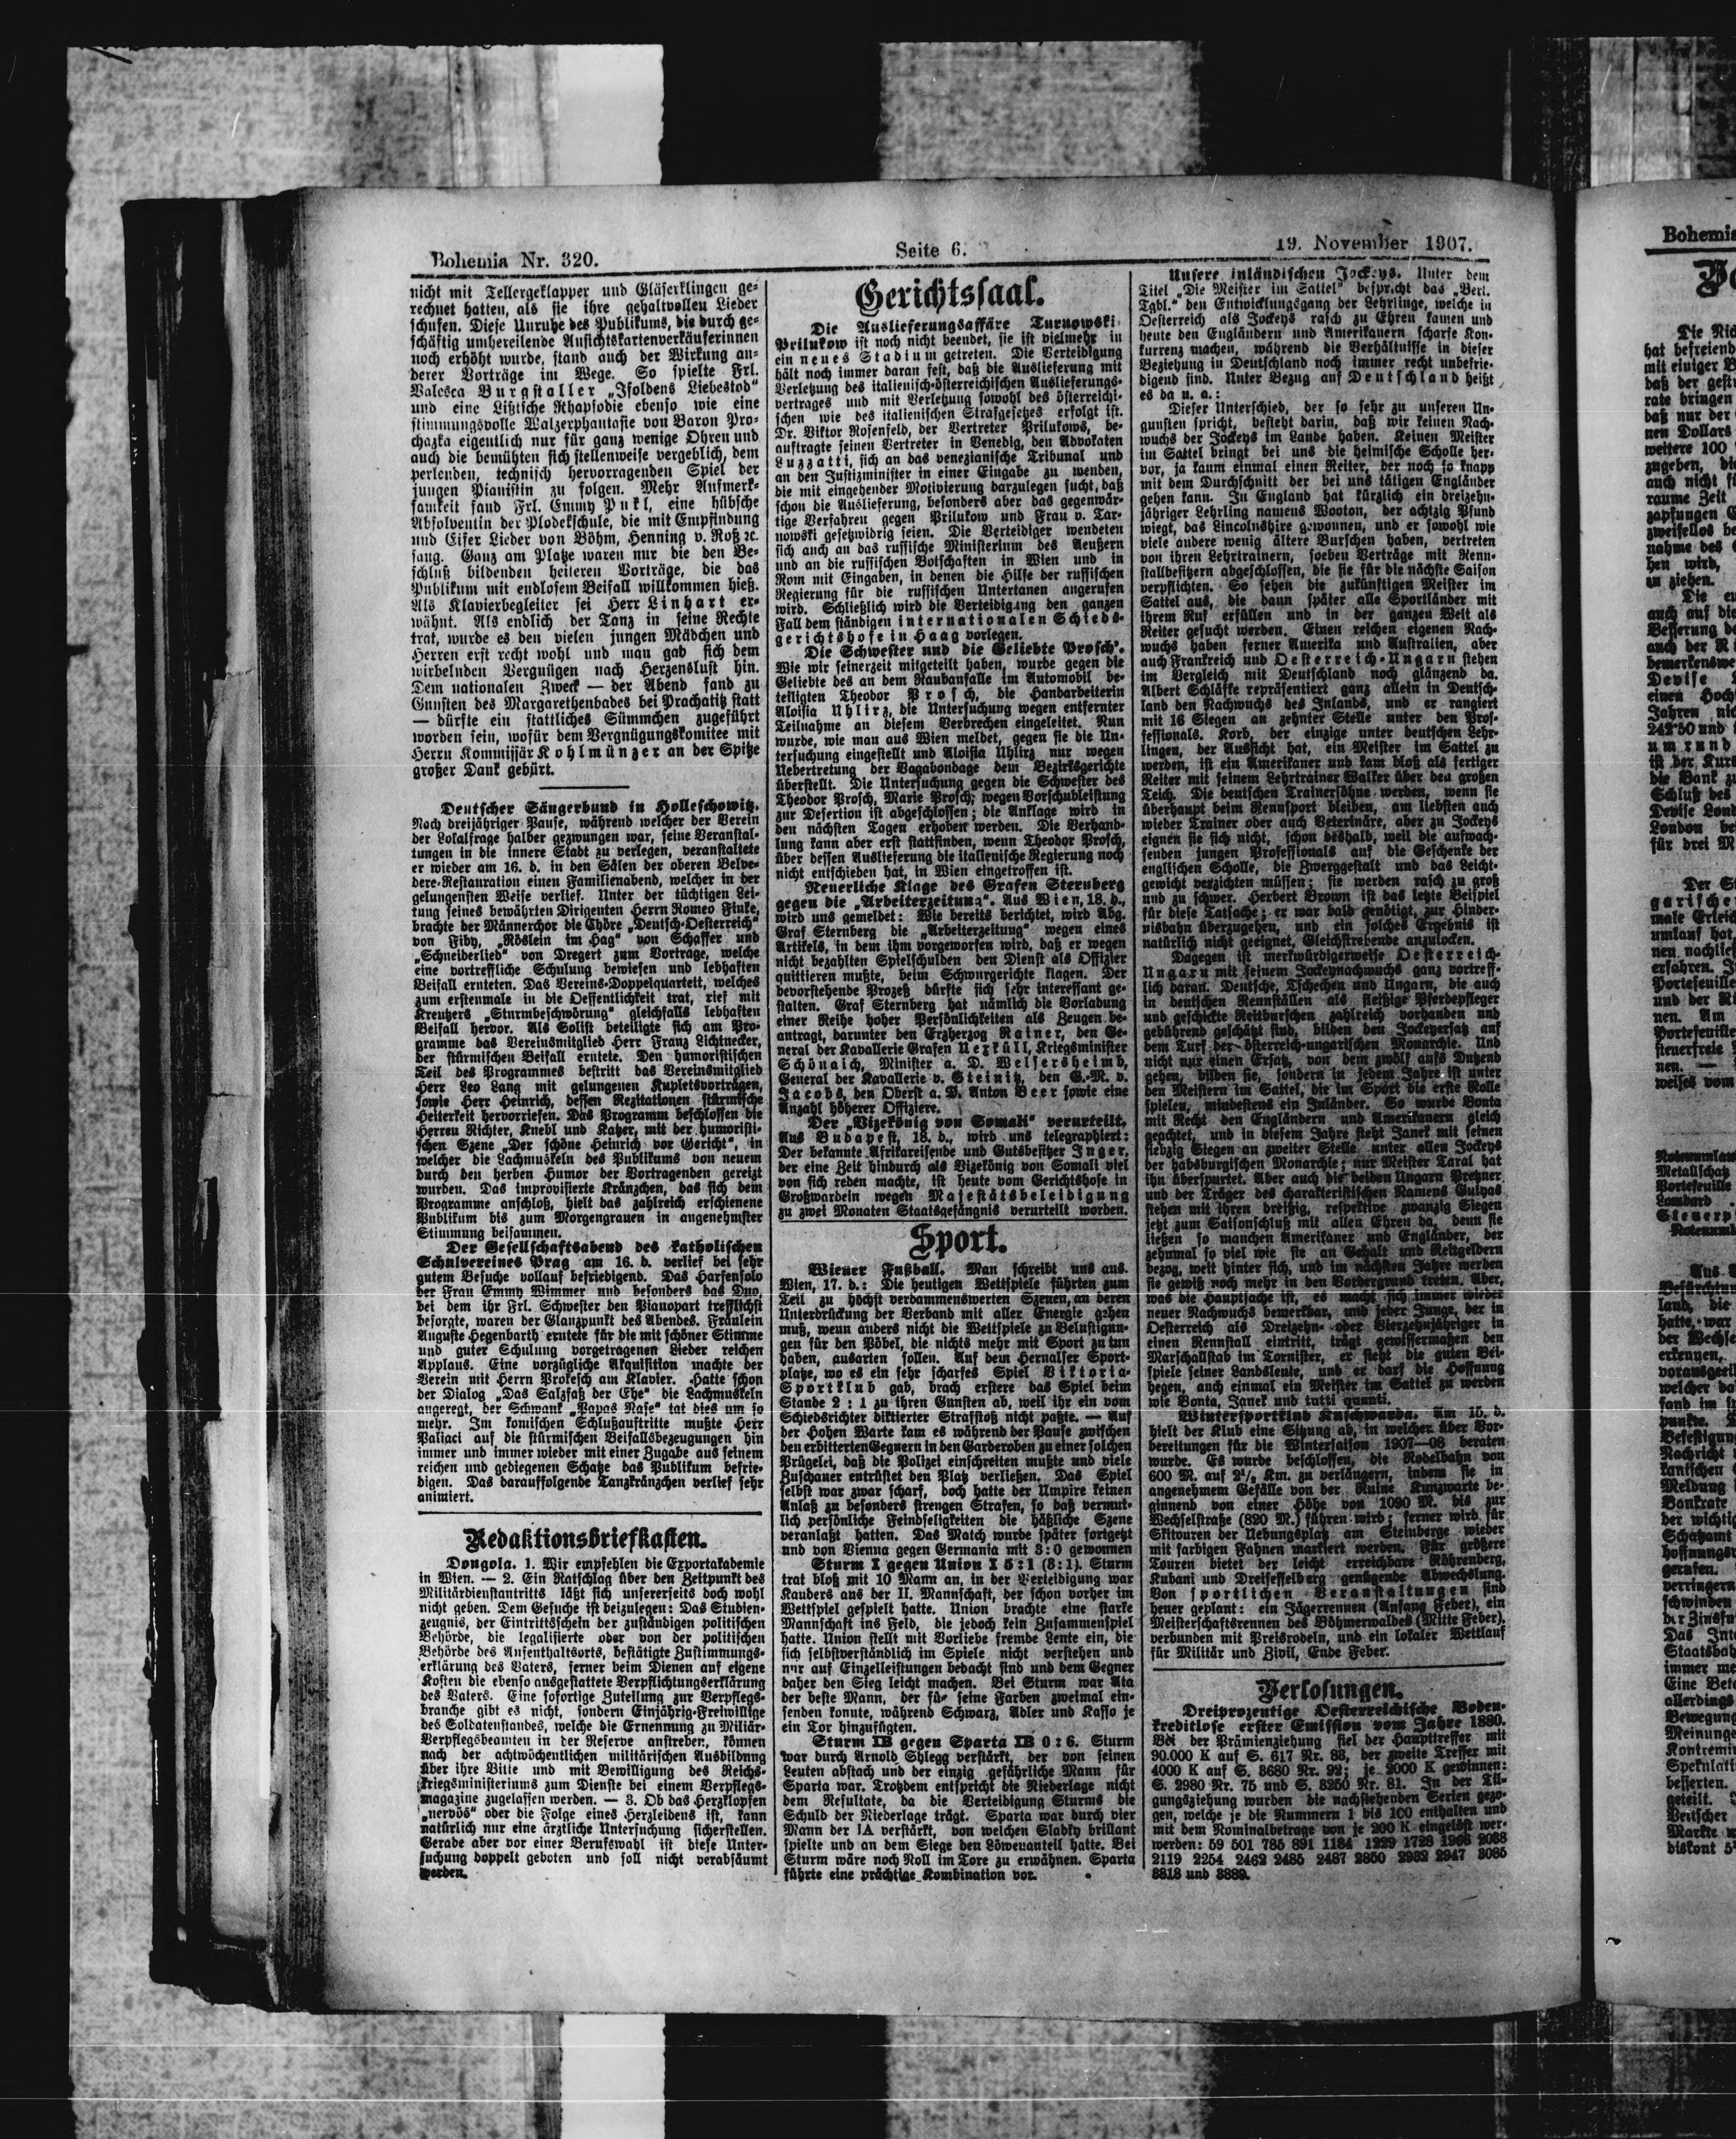 Bohemia Nr. 320.
Seite 6.
19. November 1907.
nicht mit Tellergeklapper und Gläserklingen ge-
rechnet hatten, als sie ihre gehaltvollen Lieder
schufen. Diese Unruhe des Publikums, die durch ge-
schäftig umhereilende Ansichtskartenverkäuferinnen
noch erhöht wurde, stand auch der Wirkung an-
derer Vorträge im Wege. So spielte Frl.
Valesca Burgstaller „Isoldens Liebestod“
und eine Lißtsche Rhapsodie ebenso wie eine
stimmungsvolle Walzerphantasie von Baron Pro-
chazka eigentlich nur für ganz wenige Ohren und
auch die bemühten sich stellenweise vergeblich, dem
perlenden, technisch hervorragenden Spiel der
jungen Pianistin zu folgen. Mehr Aufmerk-
samkeit fand Frl. Emmy Pukl, eine hübsche
Absolventin der Plodekschule, die mit Empfindung
und Eifer Lieder von Böhm, Henning v. Roß ꝛc.
sang. Ganz am Platze waren nur die den Be-
schluß bildenden heiteren Vorträge, die das
Publikum mit endlosem Beifall willkommen hieß.
Als Klavierbegleiter sei Herr Linhart er-
wähnt. Als endlich der Tanz in seine Rechte
trat, wurde es den vielen jungen Mädchen und
Herren erst recht wohl und man gab sich dem
wirbelnden Vergnügen nach Herzenslust hin.
Dem nationalen Zweck — der Abend fand zu
Gunsten des Margarethenbades bei Prachatitz statt
— dürfte ein stattliches Sümmchen zugeführt
worden sein, wofür dem Vergnügungskomitee mit
Herrn Kommissär Kohlmünzer an der Spitze
großer Dank gebürt.
Deutscher Sängerbund in Holleschowitz.
Nach dreijähriger Pause, während welcher der Verein
der Lokalfrage halber gezwungen war, seine Veranstal-
tungen in die innere Stadt zu verlegen, veranstaltete
er wieder am 16. d. in den Sälen der oberen Belve-
dere-Restauration einen Familienabend, welcher in der
gelungensten Weise verlief. Unter der tüchtigen Lei-
tung seines bewährten Dirigenten Herrn Romeo Finke,
brachte der Männerchor die Chöre „Deutsch-Oesterreich“
von Fiby, „Röslein im Hag“ von Schaffer und
„Schneiderlied“ von Dregert zum Vortrage, welche
eine vortreffliche Schulung bewiesen und lebhaften
Beifall ernteten. Das Vereins-Doppelquartett, welches
zum erstenmale in die Oeffentlichkeit trat, rief mit
Kreutzers „Sturmbeschwörung“ gleichfalls lebhaften
Beifall hervor. Als Solist beteiligte sich am Pro-
gramme das Vereinsmitglied Herr Franz Lichtnecker,
der stürmischen Beifall erntete. Den humoristischen
Teil des Programmes bestritt das Vereinsmitglied
Herr Leo Lang mit gelungenen Kupletsvorträgen,
sowie Herr Heinrich, dessen Rezitationen stürmische
Heiterkeit hervorriefen. Das Programm beschlossen die
Herren Richter, Knebl und Katzer, mit der humoristi-
schen Szene „Der schöne Heinrich vor Gericht“, in
welcher die Lachmuskeln des Publikums von neuem
durch den herben Humor der Vortragenden gereizt
wurden. Das improvisierte Kränzchen, das sich dem
Programme anschloß, hielt das zahlreich erschienene
Publikum bis zum Morgengrauen in angenehmster
Stimmung beisammen.
Der Gesellschaftsabend des katholischen
Schulvereines Prag am 16. d. verlief bei sehr
gutem Besuche vollauf befriedigend. Das Harfensolo
der Frau Emmy Wimmer und besonders das Duo,
bei dem ihr Frl. Schwester den Pianopart trefflichst
besorgte, waren der Glanzpunkt des Abendes. Fräulein
Auguste Hegenbarth erntete für die mit schöner Stimme
und guter Schulung vorgetragenen Lieder reichen
Applaus. Eine vorzügliche Akquisition machte der
Verein mit Herrn Prokesch am Klavier. Hatte schon
der Dialog „Das Salzfaß der Ehe“ die Lachmuskeln
angeregt, der Schwank „Papas Nase“ tat dies um so
mehr. Im komischen Schlußauftritte mußte Herr
Paliaci auf die stürmischen Beifallsbezeugungen hin
immer und immer wieder mit einer Zugabe aus seinem
reichen und gediegenen Schatze das Publikum befrie-
digen. Das darauffolgende Tanzkränzchen verlief sehr
animiert.
Redaktionsbriefkasten.
Dongola. 1. Wir empfehlen die Exportakademie
in Wien. — 2. Ein Ratschlag über den Zeitpunkt des
Militärdienstantritts läßt sich unsererseits doch wohl
nicht geben. Dem Gesuche ist beizulegen: Das Studien-
zeugnis, der Eintrittsschein der zuständigen politischen
Behörde, die legalisierte oder von der politischen
Behörde des Aufenthaltsorts, bestätigte Zustimmungs-
erklärung des Vaters, ferner beim Dienen auf eigene
Kosten die ebenso ausgestattete Verpflichtungserklärung
des Vaters. Eine sofortige Zuteilung zur Verpflegs-
branche gibt es nicht, sondern Einjährig-Freiwillige
des Soldatenstandes, welche die Ernennung zu Militär-
Verpflegsbeamten in der Reserve anstreben, können
nach der achtwöchentlichen militärischen Ausbildung
über ihre Bitte und mit Bewilligung des Reichs-
kriegsministeriums zum Dienste bei einem Verpflegs-
magazine zugelassen werden. — 3. Ob das Herzklopfen
„nervös“ oder die Folge eines Herzleidens ist, kann
natürlich nur eine ärztliche Untersuchung sicherstellen.
Gerade aber vor einer Berufswahl ist diese Unter-
suchung doppelt geboten und soll nicht verabsäumt
werden.
Gerichtssaal.
Die Auslieferungsaffäre Turnowski-
Prilukow ist noch nicht beendet, sie ist vielmehr in
ein neues Stadium getreten. Die Verteidigung
hält noch immer daran fest, daß die Auslieferung mit
Verletzung des italienisch-österreichischen Auslieferungs-
vertrages und mit Verletzung sowohl des österreichi-
schen wie des italienischen Strafgesetzes erfolgt ist.
Dr. Viktor Rosenfeld, der Vertreter Prilukows, be-
auftragte seinen Vertreter in Venedig, den Advokaten
Luzzatti, sich an das venezianische Tribunal und
an den Justizminister in einer Eingabe zu wenden,
die mit eingehender Motivierung darzulegen sucht, daß
schon die Auslieferung, besonders aber das gegenwär-
tige Verfahren gegen Prilukow und Frau v. Tar-
nowski gesetzwidrig seien. Die Verteidiger wendeten
sich auch an das russische Ministerium des Aeußern
und an die russischen Botschaften in Wien und in
Rom mit Eingaben, in denen die Hilfe der russischen
Regierung für die russischen Untertanen angerufen
wird. Schließlich wird die Verteidigung den ganzen
Fall dem ständigen internationalen Schieds-
gerichtshofe in Haag vorlegen.
Die Schwester und die Geliebte Prosch’.
Wie wir seinerzeit mitgeteilt haben, wurde gegen die
Geliebte des an dem Raubanfalle im Automobil be-
teiligten Theodor Prosch, die Handarbeiterin
Aloisia Uhlirz, die Untersuchung wegen entfernter
Teilnahme an diesem Verbrechen eingeleitet. Nun
wurde, wie man aus Wien meldet, gegen sie die Un-
tersuchung eingestellt und Aloisia Uhlirz nur wegen
Uebertretung der Vagabondage dem Bezirksgerichte
überstellt. Die Untersuchung gegen die Schwester des
Theodor Prosch, Marie Prosch, wegen Vorschubleistung
zur Desertion ist abgeschlossen; die Anklage wird in
den nächsten Tagen erhoben werden. Die Verhand-
lung kann aber erst stattfinden, wenn Theodor Prosch,
über dessen Auslieferung die italienische Regierung noch
nicht entschieden hat, in Wien eingetroffen ist.
Neuerliche Klage des Grafen Sternberg
gegen die „Arbeiterzeitung“. Aus Wien, 18. d.,
wird uns gemeldet: Wie bereits berichtet, wird Abg.
Graf Sternberg die „Arbeiterzeitung“ wegen eines
Artikels, in dem ihm vorgeworfen wird, daß er wegen
nicht bezahlten Spielschulden den Dienst als Offizier
quittieren mußte, beim Schwurgerichte klagen. Der
bevorstehende Prozeß dürfte sich sehr interessant ge-
stalten. Graf Sternberg hat nämlich die Vorladung
einer Reihe hoher Persönlichkeiten als Zeugen be-
antragt, darunter den Erzherzog Rainer, den Ge-
neral der Kavallerie Grafen Uexküll, Kriegsminister
Schönaich, Minister a. D. Welsersheimb,
General der Kavallerie v. Steinitz, den G.-M. v.
Jacobs, den Oberst a. D. Anton Beer sowie eine
Anzahl höherer Offiziere.
Der „Vizekönig von Somali“ verurteilt.
Aus Budapest, 18. d., wird uns telegraphiert:
Der bekannte Afrikareisende und Gutsbesitzer Inger,
der eine Zeit hindurch als Vizekönig von Somali viel
von sich reden machte, ist heute vom Gerichtshofe in
Großwardein wegen Majestätsbeleidigung
zu zwei Monaten Staatsgefängnis verurteilt worden.
Sport.
Wiener Fußball. Man schreibt uns aus.
Wien, 17. d.: Die heutigen Wettspiele führten zum
Teil zu höchst verdammenswerten Szenen, an deren
Unterdrückung der Verband mit aller Energie gehen
muß, wenn anders nicht die Wettspiele zu Belustigun-
gen für den Pöbel, die nichts mehr mit Sport zu tun
haben, ausarten sollen. Auf dem Hernalser Sport-
platze, wo es ein sehr scharfes Spiel Viktoria-
Sportklub gab, brach erstere das Spiel beim
Stande 2 : 1 zu ihren Gunsten ab, weil ihr ein vom
Schiedsrichter diktierter Strafstoß nicht paßte. — Auf
der Hohen Warte kam es während der Pause zwischen
den erbitterten Gegnern in den Garderoben zu einer solchen
Prügelei, daß die Polizei einschreiten mußte und viele
Zuschauer entrüstet den Platz verließen. Das Spiel
selbst war zwar scharf, doch hatte der Umpire keinen
Anlaß zu besonders strengen Strafen, so daß vermut-
lich persönliche Feindseligkeiten die häßliche Szene
veranlaßt hatten. Das Match wurde später fortgesetzt
und von Vienna gegen Germania mit 3:0 gewonnen
Sturm I gegen Union I 5:1 (3:1). Sturm
trat bloß mit 10 Mann an, in der Verteidigung war
Kauders aus der II. Mannschaft, der schon vorher im
Wettspiel gespielt hatte. Union brachte eine starke
Mannschaft ins Feld, die jedoch kein Zusammenspiel
hatte. Union stellt mit Vorliebe fremde Leute ein, die
sich selbstverständlich im Spiele nicht verstehen und
nur auf Einzelleistungen bedacht sind und dem Gegner
daher den Sieg leicht machen. Bei Sturm war Ata
der beste Mann, der für seine Farben zweimal ein-
senden konnte, während Schwarz, Adler und Kasso je
ein Tor hinzufügten.
Sturm IB gegen Sparta IB 0:6. Sturm
war durch Arnold Shlegg verstärkt, der von seinen
Leuten abstach und der einzig gefährliche Mann für
Sparta war. Trotzdem entspricht die Niederlage nicht
dem Resultate, da die Verteidigung Sturms die
Schuld der Niederlage trägt. Sparta war durch vier
Mann der IA verstärkt, von welchen Sladky brillant
spielte und an dem Siege den Löwenanteil hatte. Bei
Sturm wäre noch Noll im Tore zu erwähnen. Sparta
führte eine prächtige Kombination vor.
Unsere inländischen Jockeys. Unter dem
Titel „Die Meister im Sattel“ bespricht das „Berl.
Tgbl.“ den Entwicklungsgang der Lehrlinge, welche in
Oesterreich als Jockeys rasch zu Ehren kamen und
heute den Engländern und Amerikanern scharfe Kon-
kurrenz machen, während die Verhältnisse in dieser
Beziehung in Deutschland noch immer recht unbefrie-
digend sind. Unter Bezug auf Deutschland heißt
es da u. a.:
Dieser Unterschied, der so sehr zu unseren Un-
gunsten spricht, besteht darin, daß wir keinen Nach-
wuchs der Jockeys im Lande haben. Keinen Meister
im Sattel bringt bei uns die heimische Scholle her-
vor, ja kaum einmal einen Reiter, der noch so knapp
mit dem Durchschnitt der bei uns tätigen Engländer
gehen kann. In England hat kürzlich ein dreizehn-
jähriger Lehrling namens Wooton, der achtzig Pfund
wiegt, das Lincolnshire gewonnen, und er sowohl wie
viele andere wenig ältere Burschen haben, vertreten
von ihren Lehrtrainern, soeben Verträge mit Renn-
stallbesitzern abgeschlossen, die sie für die nächste Saison
verpflichten. So sehen die zukünftigen Meister im
Sattel aus, die dann später alle Sportländer mit
ihrem Ruf erfüllen und in der ganzen Welt als
Reiter gesucht werden. Einen reichen eigenen Nach-
wuchs haben ferner Amerika und Australien, aber
auch Frankreich und Oesterreich-Ungarn stehen
im Vergleich mit Deutschland noch glänzend da.
Albert Schläfke repräsentiert ganz allein in Deutsch-
land den Nachwuchs des Inlands, und er rangiert
mit 16 Siegen an zehnter Stelle unter den Prof-
fessionals. Korb, der einzige unter deutschen Lehr-
lingen, der Aussicht hat, ein Meister im Sattel zu
werden, ist ein Amerikaner und kam bloß als fertiger
Reiter mit seinem Lehrtrainer Walker über den großen
Teich. Die deutschen Trainersöhne werden, wenn sie
überhaupt beim Rennsport bleiben, am liebsten auch
wieder Trainer oder auch Veterinäre, aber zu Jockeys
eignen sie sich nicht, schon deshalb, weil die aufwach-
senden jungen Professionals auf die Geschenke der
englischen Scholle, die Zwerggestalt und das Leicht-
gewicht verzichten müssen; sie werden rasch zu groß
und zu schwer. Herbert Brown ist das letzte Beispiel
für diese Tatsache; er war bald genötigt, zur Hinder-
nisbahn überzugehen, und ein solches Ergebnis ist
natürlich nicht geeignet, Gleichstrebende anzulocken.
Dagegen ist merkwürdigerweise Oesterreich-
Ungarn mit seinem Jockeynachwuchs ganz vortreff-
lich daran. Deutsche, Tschechen und Ungarn, die auch
in deutschen Rennställen als fleißige Pferdepfleger
und geschickte Reitburschen zahlreich vorhanden und
gebührend geschätzt sind, bilden den Jockeyersatz auf
dem Turf der österreich-ungarischen Monarchie. Und
nicht nur einen Ersatz, von dem zwölf aufs Dutzend
gehen, bilden sie, sondern in jedem Jahre ist unter
den Meistern im Sattel, die im Sport die erste Rolle
spielen, mindestens ein Inländer. So wurde Bonta
mit Recht den Engländern und Amerikanern gleich
geachtet, und in diesem Jahre steht Janek mit seinen
siebzig Siegen an zweiter Stelle unter allen Jockeys
der habsburgischen Monarchie; nur Meister Taral hat
ihn überspurtet. Aber auch die beiden Ungarn Pretzner
und der Träger des charakteristischen Namens Gulyas
stehen mit ihren dreißig, respektive zwanzig Siegen
jetzt zum Saisonschluß mit allen Ehren da, denn sie
ließen so manchen Amerikaner und Engländer, der
zehnmal so viel wie sie an Gehalt und Reitgeldern
bezog, weit hinter sich, und im nächsten Jahre werden
sie gewiß noch mehr in den Vordergrund treten. Aber,
was die Hauptsache ist, es macht sich immer wieder
neuer Nachwuchs bemerkbar, und jeder Junge, der in
Oesterreich als Dreizehn- oder Vierzehnjähriger in
einen Rennstall eintritt, trägt gewissermaßen den
Marschallstab im Tornister, er sieht die guten Bei-
spiele seiner Landsleute, und er darf die Hoffnung
hegen, auch einmal ein Meister im Sattel zu werden
wie Bonta, Janek und tutti quanti.
Wintersportklub Kuschwarda. Am 15. d.
hielt der Klub eine Sitzung ab, in welcher über Vor-
bereitungen für die Wintersaison 1907—08 beraten
wurde. Es wurde beschlossen, die Rodelbahn von
600 M. auf 2½ Km. zu verlängern, indem sie in
angenehmem Gefälle von der Ruine Kunzwarte be-
ginnend von einer Höhe von 1090 M. bis zur
Wechselstraße (820 M.) führen wird; ferner wird für
Skitouren der Uebungsplatz am Steinberge wieder
mit farbigen Fahnen markiert werden. Für größere
Touren bietet der leicht erreichbare Röhrenberg,
Kubani und Dreisesselberg genügende Abwechslung.
Von sportlichen Veranstaltungen sind
heuer geplant: ein Jägerrennen (Anfang Feber), ein
Meisterschaftsrennen des Böhmerwaldes (Mitte Feber),
verbunden mit Preisrodeln, und ein lokaler Wettlauf
für Militär und Zivil, Ende Feber.
Verlosungen.
Dreiprozentige Oesterreichische Boden-
kreditlose erster Emission vom Jahre 1880.
Bei der Prämienziehung fiel der Haupttreffer mit
90.000 K auf S. 617 Nr. 88, der zweite Treffer mit
4000 K auf S. 3680 Nr. 92; je 2000 K gewinnen:
S. 2980 Nr. 75 und S. 3250 Nr. 81. In der Til-
gungsziehung wurden die nachstehenden Serien gezo-
gen, welche je die Nummern 1 bis 100 enthalten und
mit dem Nominalbetrage von je 200 K eingelöst wer-
werden: 59 501 785 891 1184 1229 1728 1966 2088
2119 2254 2462 2485 2487 2850 2932 2947 3085
3818 und 3889.
Bohemia